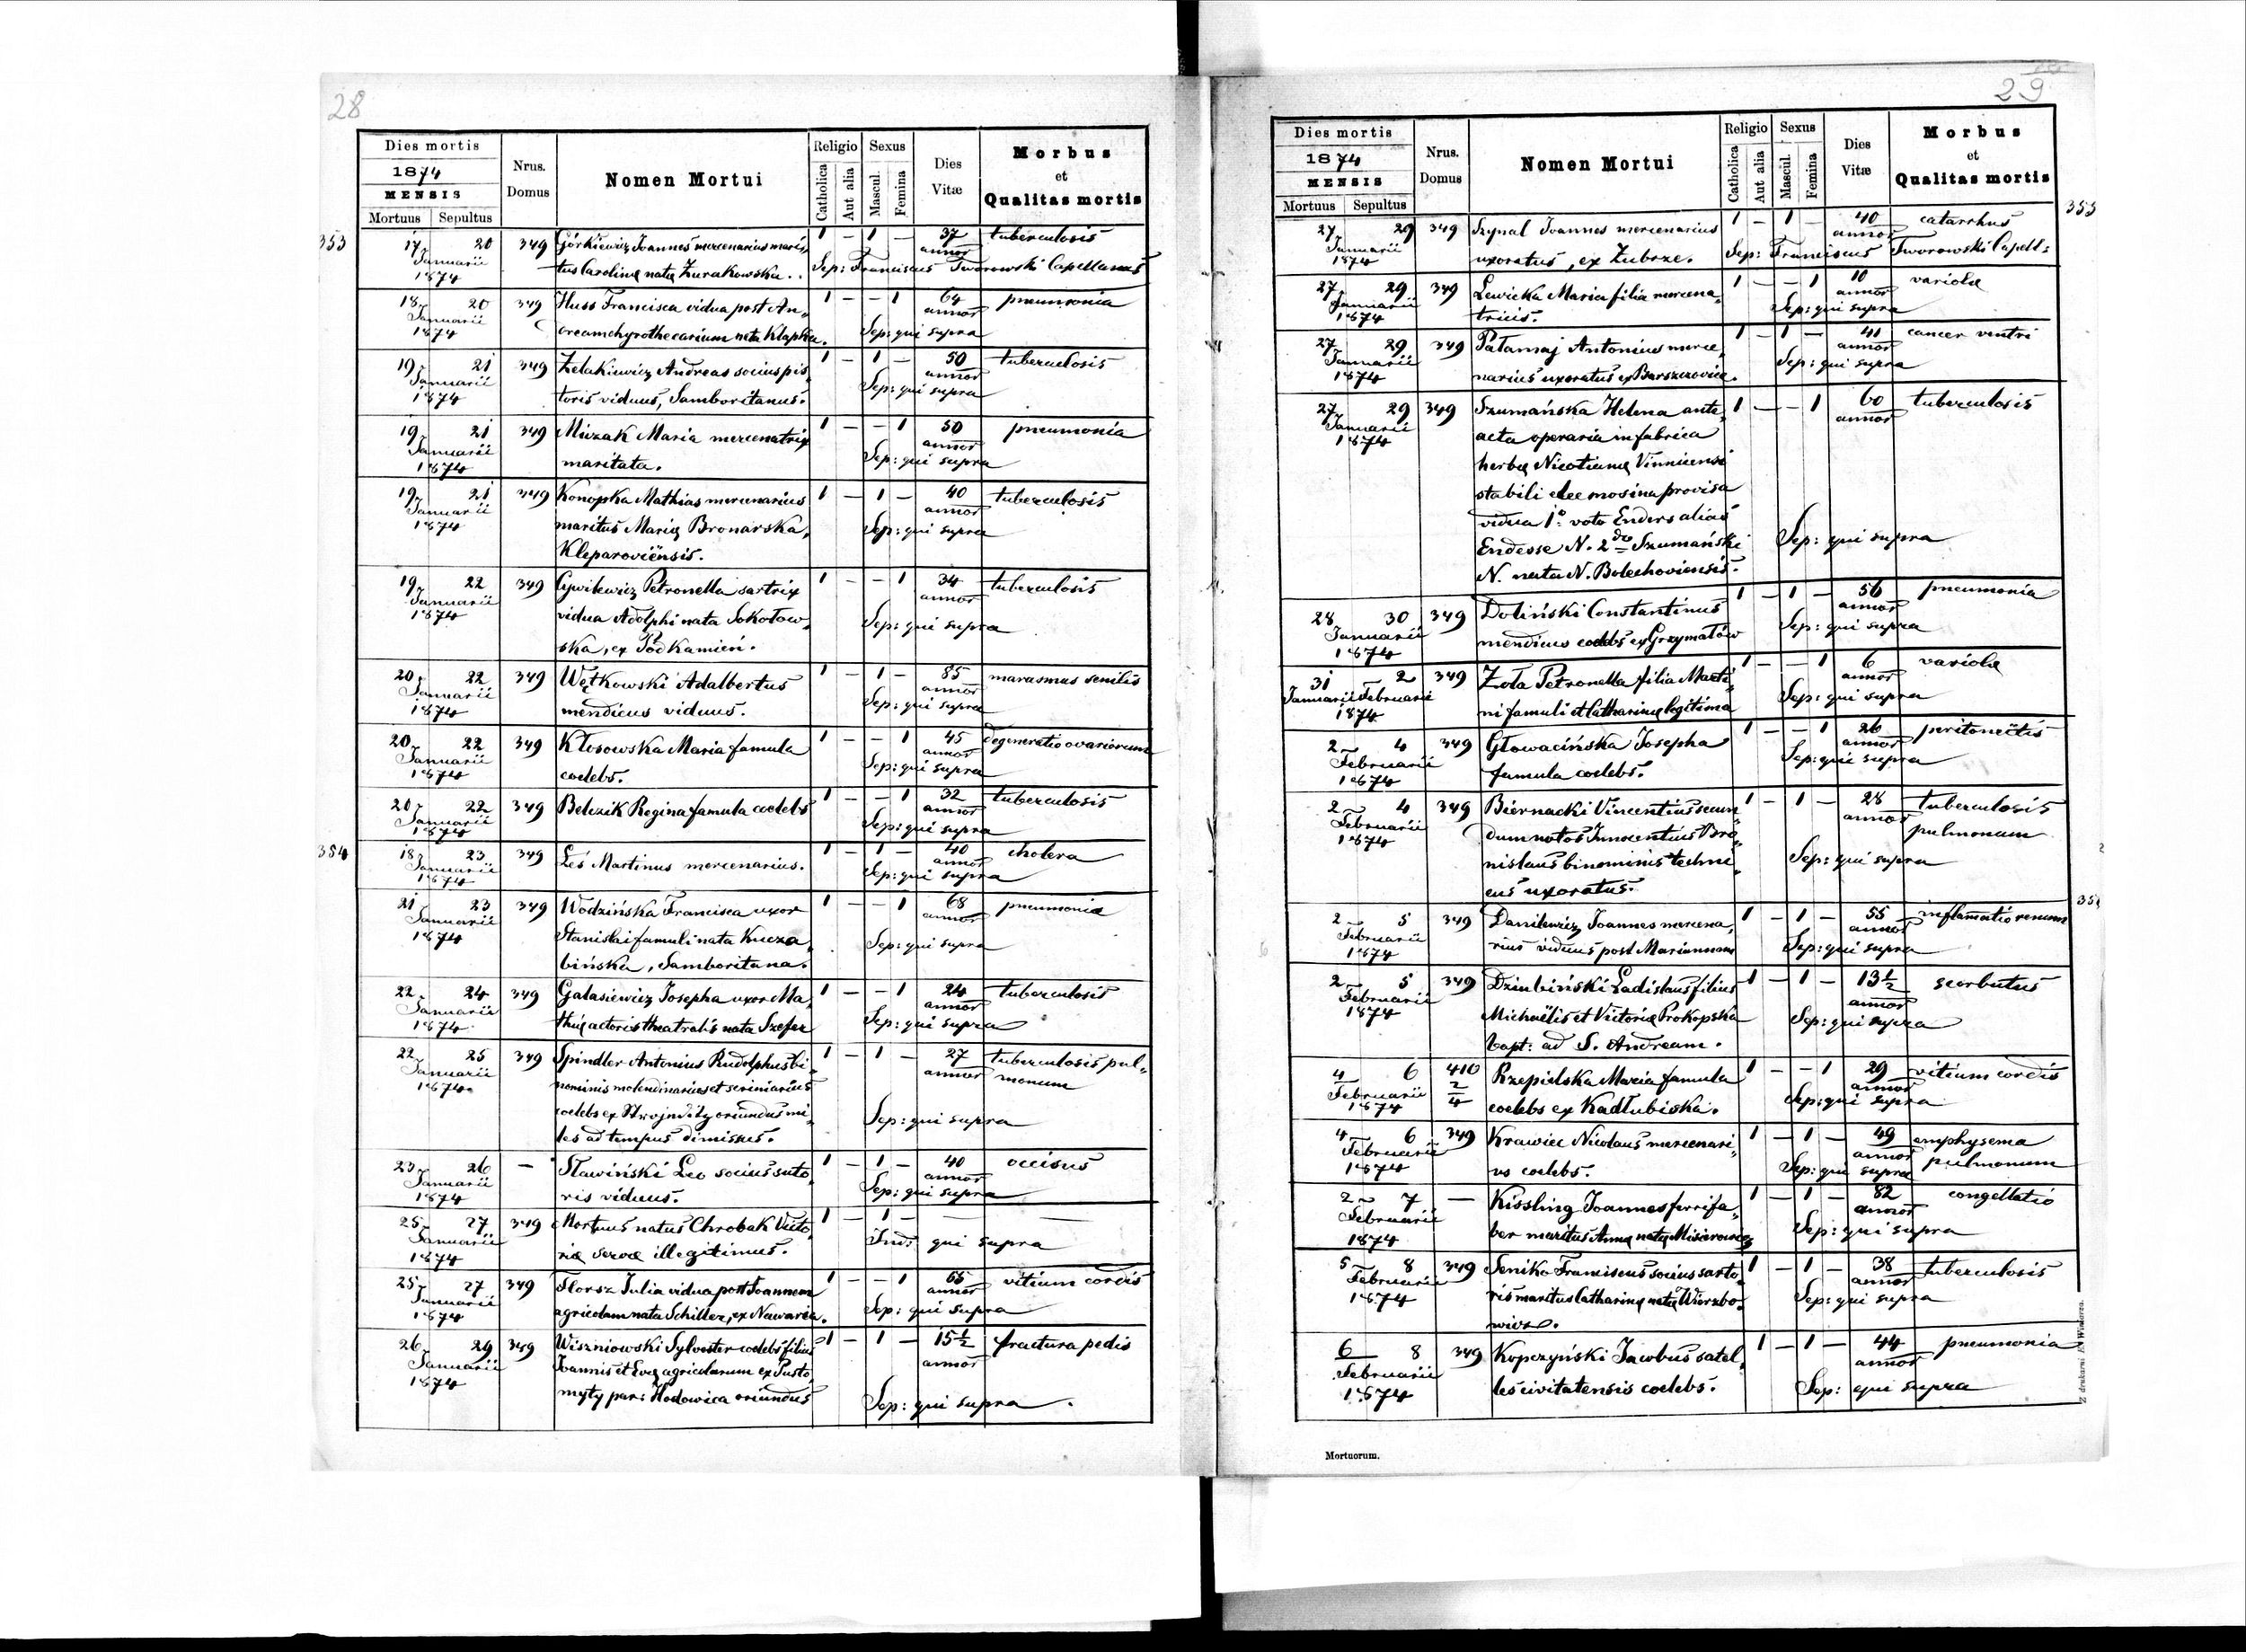 28
Dies mortis
1874
MENSIS
Mortuus Sepultus
Nrus.
Domus
Nomen Mortui
Religio
Catholica
Aut alia
Sexus
Mascul.
Femina
Dies
Vitæ
Morbus
et
Qualitas mortis
353
17 20 349 Górkiewicz Joannes mercenarius mari- 1 – 1 – 37 tuberculosis
Januarii annor
1874 tus Carolinę natę Żurakowska. Sep: Franciscus Tworowski Capellanus
18 20 349 Huss Francisca vidua post An- 1 – – 1 64 pneumonia
Januarii annor
1874 dream chyrothecarium nata Klapka. Sep: qui supra
19 21 349 Zelakiewicz Andreas socius pis- 1 – 1 – 50 tuberculosis
Januarii annor
1874 toris viduus, Samboritanus. Sep: qui supra
19 21 349 Maria mercenatrix 1 – – 1 50 pneumonia
Januarii annor
1874 maritata. Sep: qui supra
19 21 349 Konopka Mathias mercenarius 1 – 1 – 40 tuberculosis
Januarii annor
1874 maritus Marię Bronarska, Sep: qui supra
Kleparoviënsis.
19 22 349 Cywilewicz Petronella sartrix 1 – – 1 34 tuberculosis
Januarii annor
1874 vidua Adolphi nata Sokołow- Sep: qui supra
ska, ex Podkamień.
20 22 349 Wętkowski Adalbertus 1 – 1 – 85 marasmus senilis
Januarii annor
1874 mendicus viduus. Sep: qui supra
20 22 349 Kłosowska Maria famula 1 – – 1 45 degeneratio ovariorum
Januarii annor
1874 coelebs. Sep: qui supra
20 22 349 Belczik Regina famula coelebs 1 – – 1 32 tuberculosis
Januarii annor
1874 Sep: qui supra
354
18 23 349 Leś Martinus mercenarius. 1 – 1 – 40 cholera
Januarii annor
1874 Sep: qui supra
21 23 349 Wodzińska Francisca uxor 1 – – 1 68 pneumonia
Januarii annor
1874 Stanislai famuli nata Kucza- Sep: qui supra
bińska, Samboritana.
22 24 349 Galasiewicz Josepha uxor Ma- 1 – – 1 24 tuberculosis
Januarii annor
1874 thię actoris theatralis nata Szefer Sep: qui supra
22 25 349 Spindler Antonius Rudolphus bi- 1 – 1 – 27 tuberculosis pul-
Januarii annor monum
1874 nominis molendinarius et scriniarius
coelebs ex oriundus mi- Sep: qui supra
les ad tempus dimissus.
23 26 – Sławiński Leo socius suto- 1 – 1 – 40 occisus
Januarii annor
1874 ris viduus. Sep: qui supra
25 27 349 Mortuus natus Chrobak Victo- 1 – 1 – – –
Januarii
1874 rię servę illegitimus. Ind: qui supra
25 27 349 Florsz Julia vidua post Joannem 1 – – 1 66 vitium cordis
Januarii annor
1874 agricolam nata Schiller, ex Nawaria. Sep: qui supra
26 29 349 Wiszniowski Sylvester coelebs filius 1 – 1 – 15½ fractura pedis
Januarii annor
1874 Joannis et Evę agricolarum ex Pusto-
myty par: Hodowica oriundus Sep: qui supra.
29
Dies mortis
1874
MENSIS
Mortuus Sepultus
Nrus.
Domus
Nomen Mortui
Religio
Catholica
Aut alia
Sexus
Mascul.
Femina
Dies
Vitæ
Morbus
et
Qualitas mortis
353
27 29 349 Szynal Joannes mercenarius 1 – 1 – 40 catarrhus
Januarii annor
1874 uxoratus, ex Zubrze. Sep: Franciscus Tworowski Capell:
27 29 349 Lewicka Maria filia mercena- 1 – – 1 10 variolæ
Januarii annor
1874 tricis. Sep: qui supra
27 29 349 Pałamaj Antonius merce- 1 – 1 – 41 cancer ventri
Januarii annor
1874 narius uxoratus ex Barszczowice. Sep: qui supra
27 29 349 Szumańska Helena ante- 1 – – 1 60 tuberculosis
Januarii annor
1874 acta operaria in fabrica
herbę Nicotianę Vinnicensi
stabili eleemosina provisa
vidua 1º voto Enders alias
Endesse N. 2do Szumański Sep: qui supra
N. nata N. Bolechoviensis.
28 30 349 Doliński Constantinus 1 – 1 – 56 pneumonia
Januarii annor
1874 mendicus coelebs ex Grzymałów Sep: qui supra
31 2 349 Zoła Petronella filia Marti- 1 – – 1 6 variolæ
Januarii Februarii annor
1874 ni famuli et Catharinę legitima Sep: qui supra
2 4 349 Głowacińska Josepha 1 – – 1 26 peritoneitis
Februarii annor
1874 famula coelebs. Sep: qui supra
2 4 349 Biernacki Vincentius secun- 1 – 1 – 28 tuberculosis
Februarii annor pulmonum
1874 dum notos Innocentius Bro-
nislaus binominis techni- Sep: qui supra
cus uxoratus.
354
2 5 349 Danilewicz Joannes mercena- 1 – 1 – 55 inflamatio renum
Februarii annor
1874 rius viduus post Mariannam Sep: qui supra
2 5 349 Dziubiński Ladislaus filius 1 – 1 – 13½ scorbutus
Februarii annor
1874 Michaëlis et Victorię Prokopska Sep: qui supra
bapt: ad S. Andream.
4 6 410 2/4 Rzepielska Maria famula 1 – – 1 29 vitium cordis
Februarii annor
1874 coelebs ex Kadłubiska. Sep: qui supra
4 6 349 Krawiec Nicolaus mercenari- 1 – 1 – 49 emphysema
Februarii annor pulmonum
1874 us coelebs. Sep: qui supra
2 7 – Kissling Joannes ferrifa- 1 – 1 – 82 congellatio
Februarii annor
1874 ber maritus Annę natę Misierowicz Sep: qui supra
5 8 349 Seniko Franciscus socius sarto- 1 – 1 – 38 tuberculosis
Februarii annor
1874 ris maritus Catharinę natę Wierzbo- Sep: qui supra
wicz.
6 8 349 Kopczyński Jacobus satel- 1 – 1 – 44 pneumonia
Februarii annor
1874 les civitatensis coelebs. Sep: qui supra
Mortuorum.
Z drukarni E. Winiarza.